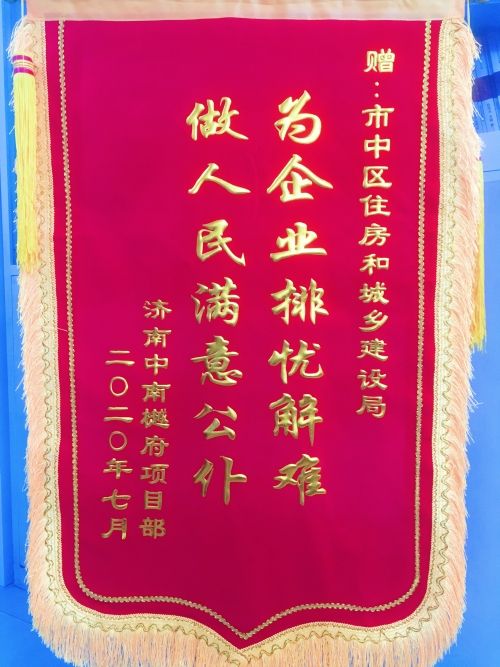 赠:市中区住房和城乡建设局
为企业排忧解难
做人民满意公仆
济南中南樾府项目部
二〇二〇年七月